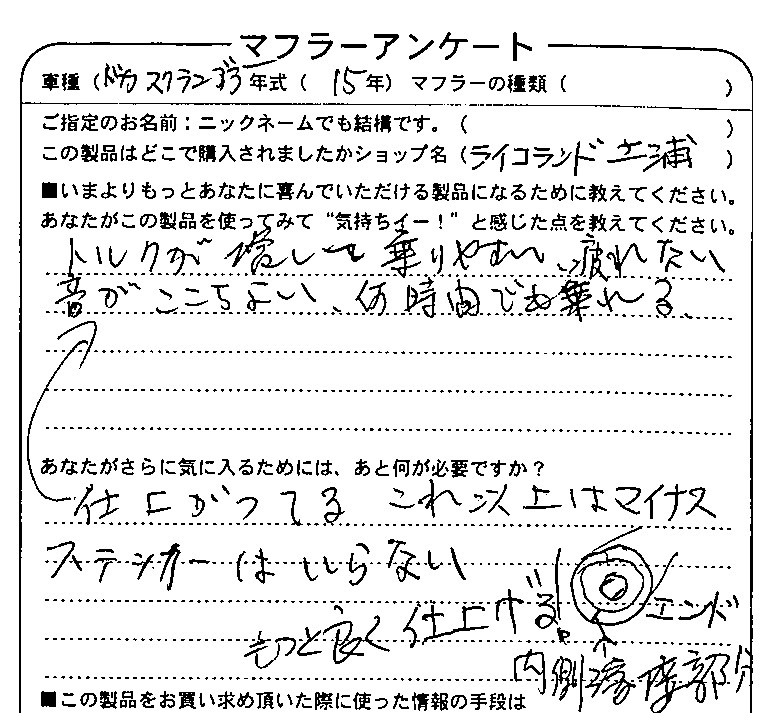 マフラーアンケート
車種（ドカ スクランブラー 年式（ 15年） マフラーの種類（　　　）
ご指定のお名前：ニックネームでも結構です。（　　　）
この製品はどこで購入されましたかショップ名（ライコランド 土浦）
■いまよりもっとあなたに喜んでいただける製品になるために教えてください。
あなたがこの製品を使ってみて“気持ちイー！”と感じた点を教えてください。
トルクが増して乗りやすい、疲れない
音がここちよい、何時間でも乗れる、
あなたがさらに気に入るためには、あと何が必要ですか？
仕上がってる これ以上はマイナス
ステッカーはいらない
もっと良く仕上げる! エンド
内側溶接部分
■この製品をお買い求め頂いた際に使った情報の手段は